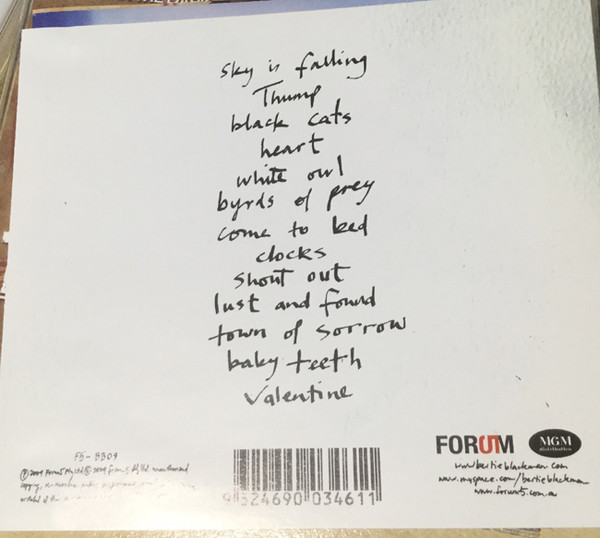 sky is falling
Thump
black cats
heart
white owl
byrds of prey
come to bed
clocks
shout out
lust and found
town of sorrow
baby teeth
Valentine
F5-BB09
FORUM
MGM
www.bertieblackman.com
www.myspace.com/bertieblackman
www.forum5.com.au
9 324690 034611